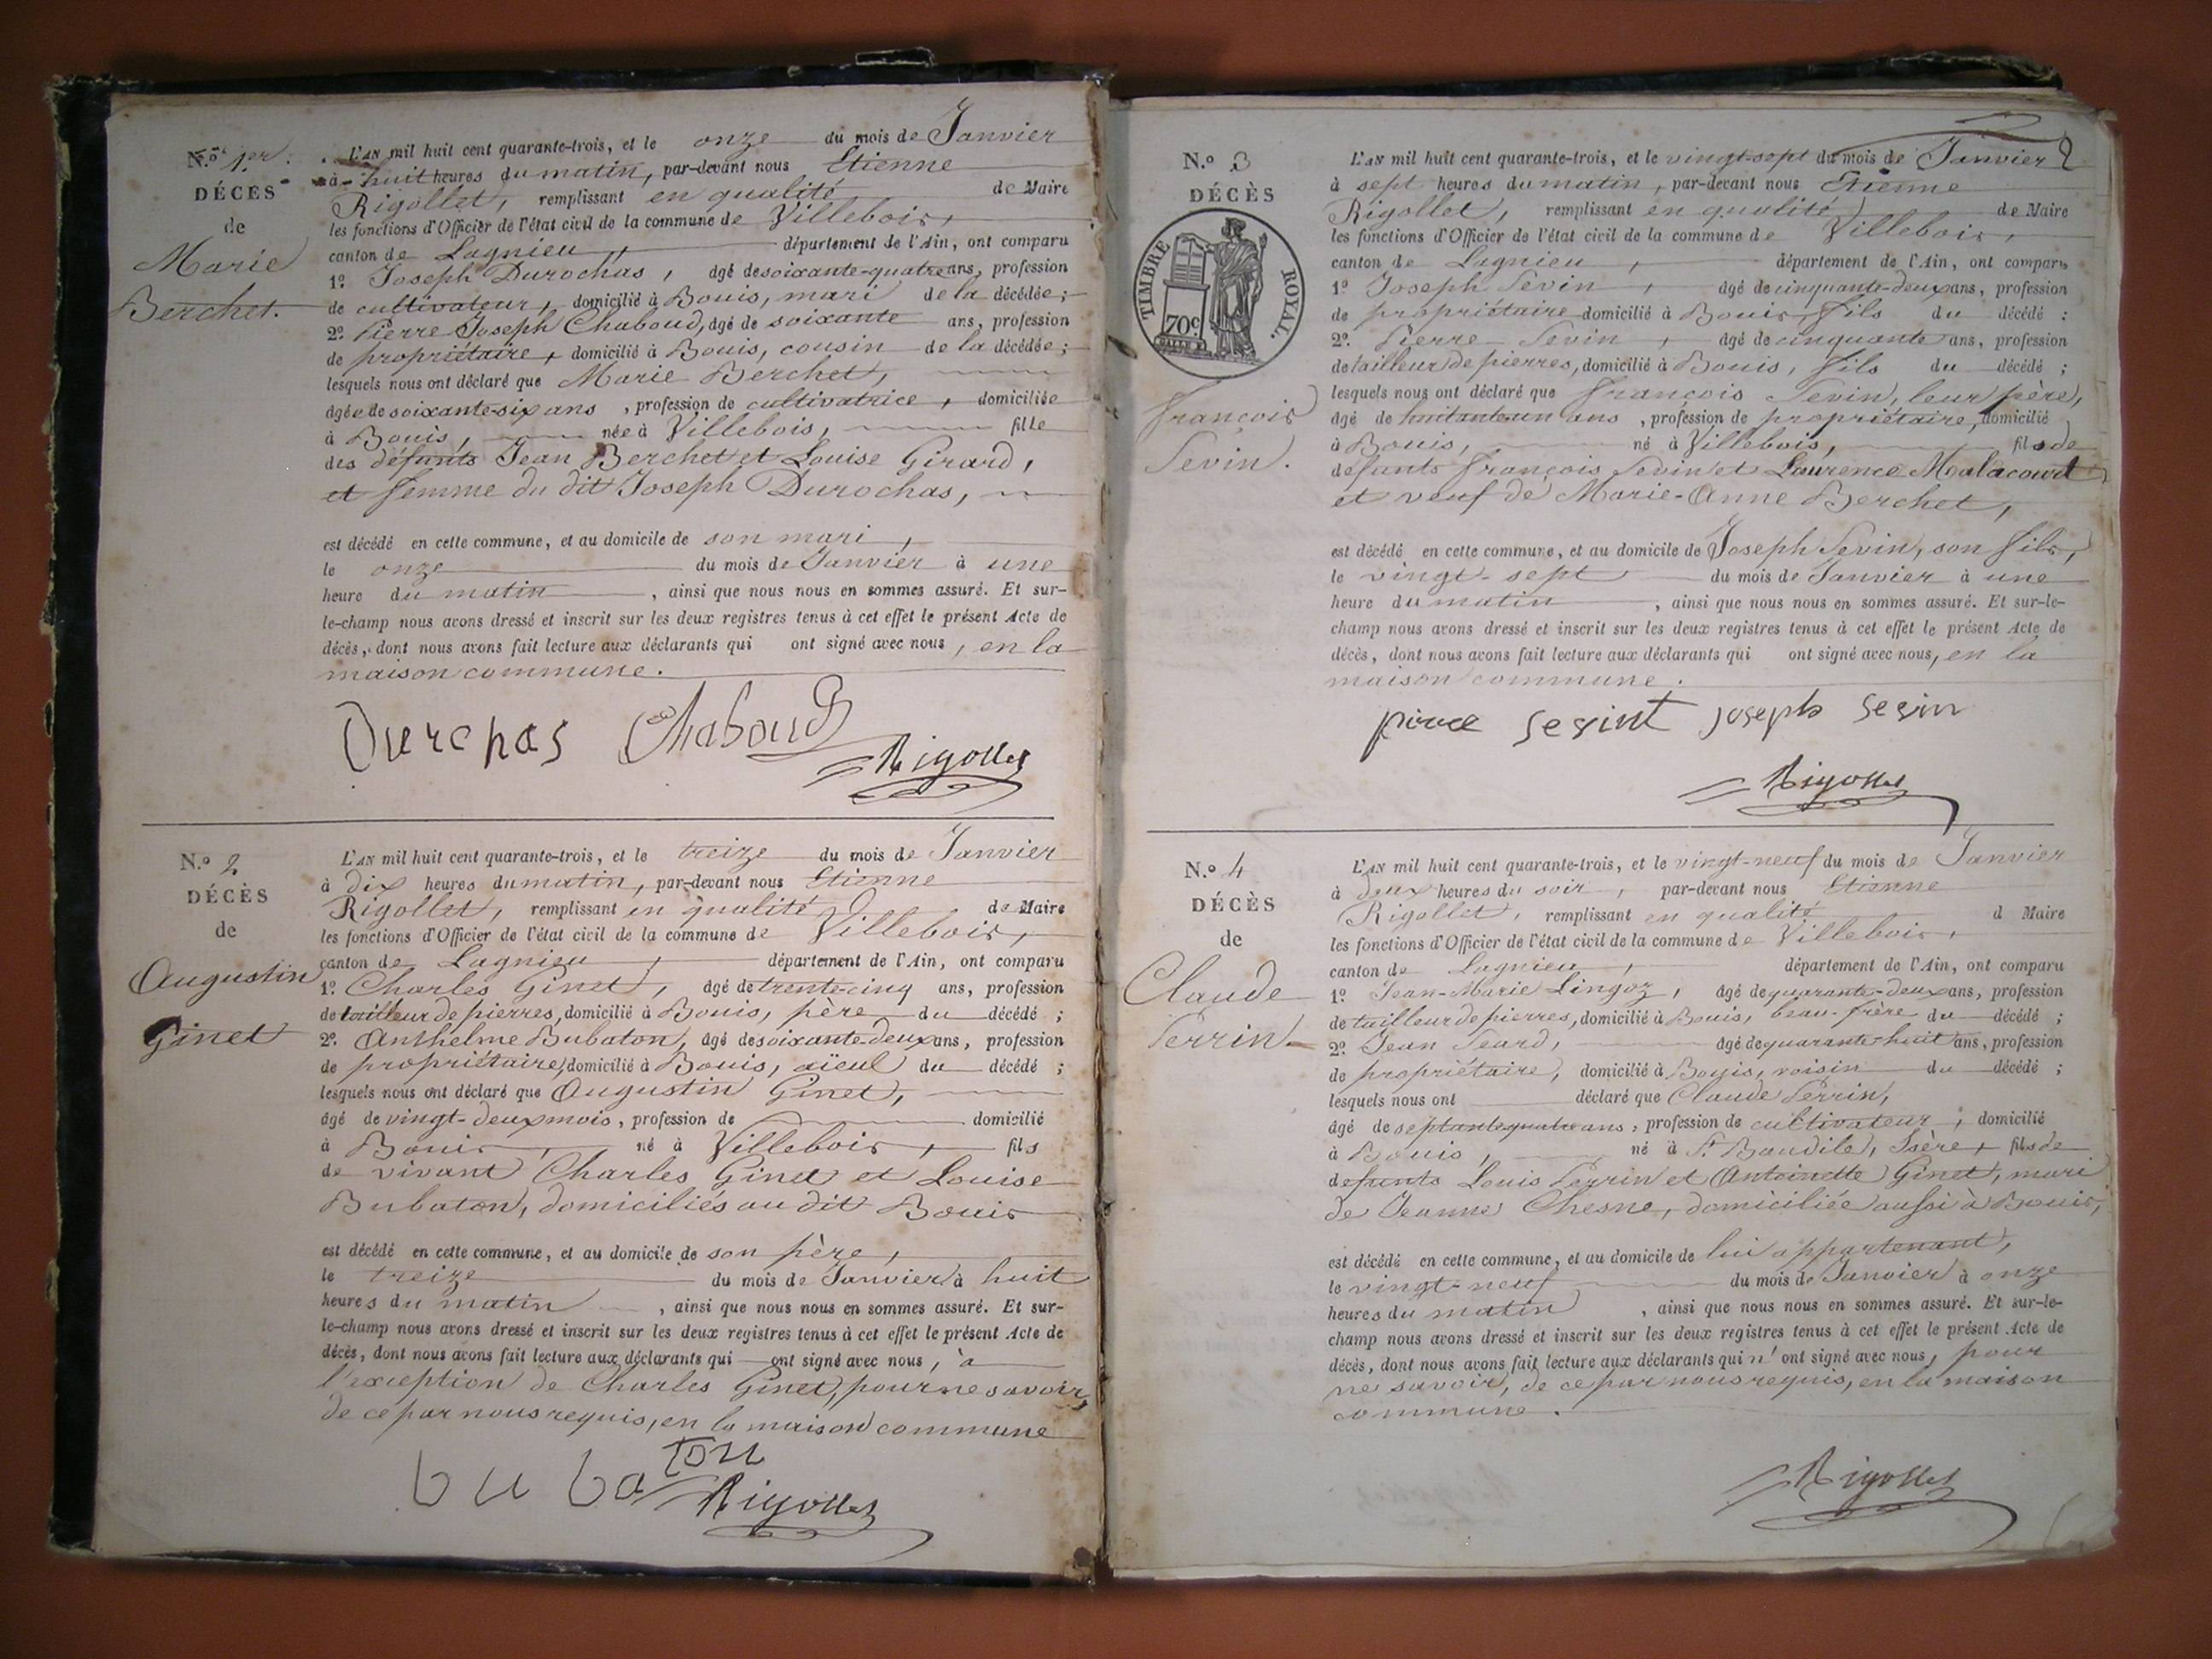 N.º 1.er
DÉCÈS
de
Marie
Berchet.
L'AN mil huit cent quarante-trois, et le onze du mois de Janvier
à huit heures du matin, par-devant nous Etienne
Rigollet, remplissant en qualité de Maire
les fonctions d'Officier de l'état civil de la commune de Villebois,
canton de Lagnieu, département de l'Ain, ont comparu
1º. Joseph Durochas, âgé de soixante-quatre ans, profession
de cultivateur, domicilié à Bouis, mari de la décédée;
2º. Pierre-Joseph Chaboud, âgé de soixante ans, profession
de propriétaire, domicilié à Bouis, cousin de la décédée;
lesquels nous ont déclaré que Marie Berchet,
âgée de soixante-six ans, profession de cultivatrice, domiciliée
à Bouis, née à Villebois, fille
des défunts Jean Berchet et Louise Girard,
et femme du dit Joseph Durochas,
est décédé en cette commune, et au domicile de son mari,
le onze du mois de Janvier à une
heure du matin, ainsi que nous nous en sommes assuré. Et sur-
le-champ nous avons dressé et inscrit sur les deux registres tenus à cet effet le présent Acte de
décès, dont nous avons fait lecture aux déclarants qui ont signé avec nous, en la
maison commune.
Durchas Chaboud
Rigollet
N.º 2
DÉCÈS
de
Augustin
Ginet
L'AN mil huit cent quarante-trois, et le treize du mois de Janvier
à dix heures du matin, par-devant nous Etienne
Rigollet, remplissant en qualité de Maire
les fonctions d'Officier de l'état civil de la commune de Villebois,
canton de Lagnieu, département de l'Ain, ont comparu
1º. Charles Ginet, âgé de trente-cinq ans, profession
de tailleur de pierres, domicilié à Bouis, père du décédé;
2º. Anthelme Bubaton, âgé de soixante-deux ans, profession
de propriétaire, domicilié à Bouis, aïeul du décédé;
lesquels nous ont déclaré que Augustin Ginet,
âgé de vingt-deux mois, profession de domicilié
à Bouis, né à Villebois, fils
de vivant Charles Ginet et Louise
Bubaton, domiciliés au dit Bouis
est décédé en cette commune, et au domicile de son père,
le treize du mois de Janvier à huit
heures du matin, ainsi que nous nous en sommes assuré. Et sur-
le-champ nous avons dressé et inscrit sur les deux registres tenus à cet effet le présent Acte de
décès, dont nous avons fait lecture aux déclarants qui ont signé avec nous, à
l'exception de Charles Ginet, pour ne savoir,
de ce par nous requis, en la maison commune
bubaton
Rigollet
2
N.º 3
DÉCÈS
TIMBRE ROYAL.
70c.
François
Sevin.
L'AN mil huit cent quarante-trois, et le vingt-sept du mois de Janvier
à sept heures du matin, par-devant nous Etienne
Rigollet, remplissant en qualité de Maire
les fonctions d'Officier de l'état civil de la commune de Villebois,
canton de Lagnieu, département de l'Ain, ont comparu
1º Joseph Sevin, âgé de cinquante-deux ans, profession
de propriétaire domicilié à Bouis, fils du décédé;
2º. Pierre Sevin, âgé de cinquante ans, profession
de tailleur de pierres, domicilié à Bouis, fils du décédé;
lesquels nous ont déclaré que François Sevin, leur père,
âgé de huitante un ans, profession de propriétaire, domicilié
à Bouis, né à Villebois, fils de
défunts François Sevin et Laurence Malacourt
et veuf de Marie-Anne Berchet,
est décédé en cette commune, et au domicile de Joseph Sevin, son fils,
le vingt-sept du mois de Janvier à une
heure du matin, ainsi que nous nous en sommes assuré. Et sur-le-
champ nous avons dressé et inscrit sur les deux registres tenus à cet effet le présent Acte de
décès, dont nous avons fait lecture aux déclarants qui ont signé avec nous, en la
maison commune.
pierre sevint joseph sevin
Rigollet
N.º 4
DÉCÈS
de
Claude
Perrin.
L'AN mil huit cent quarante-trois, et le vingt-neuf du mois de Janvier
à deux heures du soir, par-devant nous Etienne
Rigollet, remplissant en qualité d Maire
les fonctions d'Officier de l'état civil de la commune de Villebois,
canton de Lagnieu, département de l'Ain, ont comparu
1º Jean-Marie Lingoz, âgé de quarante-deux ans, profession
de tailleur de pierres, domicilié à Bouis, beau-frère du décédé;
2º. Jean Seard, âgé de quarante-huit ans, profession
de propriétaire, domicilié à Bouis, voisin du décédé;
lesquels nous ont déclaré que Claude Perrin,
âgé de septante quatre ans, profession de cultivateur, domicilié
à Bouis, né à St. Baudile, Isère, fils de
défunts Louis Perrin et Antoinette Ginet, mari
de Jeanne Chesne, domiciliée aussi à Bouis,
est décédé en cette commune, et au domicile de lui appartenant,
le vingt-neuf du mois de Janvier à onze
heures du matin, ainsi que nous nous en sommes assuré. Et sur-le-
champ nous avons dressé et inscrit sur les deux registres tenus à cet effet le présent Acte de
décès, dont nous avons fait lecture aux déclarants qui n'ont signé avec nous, pour
ne savoir, de ce par nous requis, en la maison
commune.
Rigollet